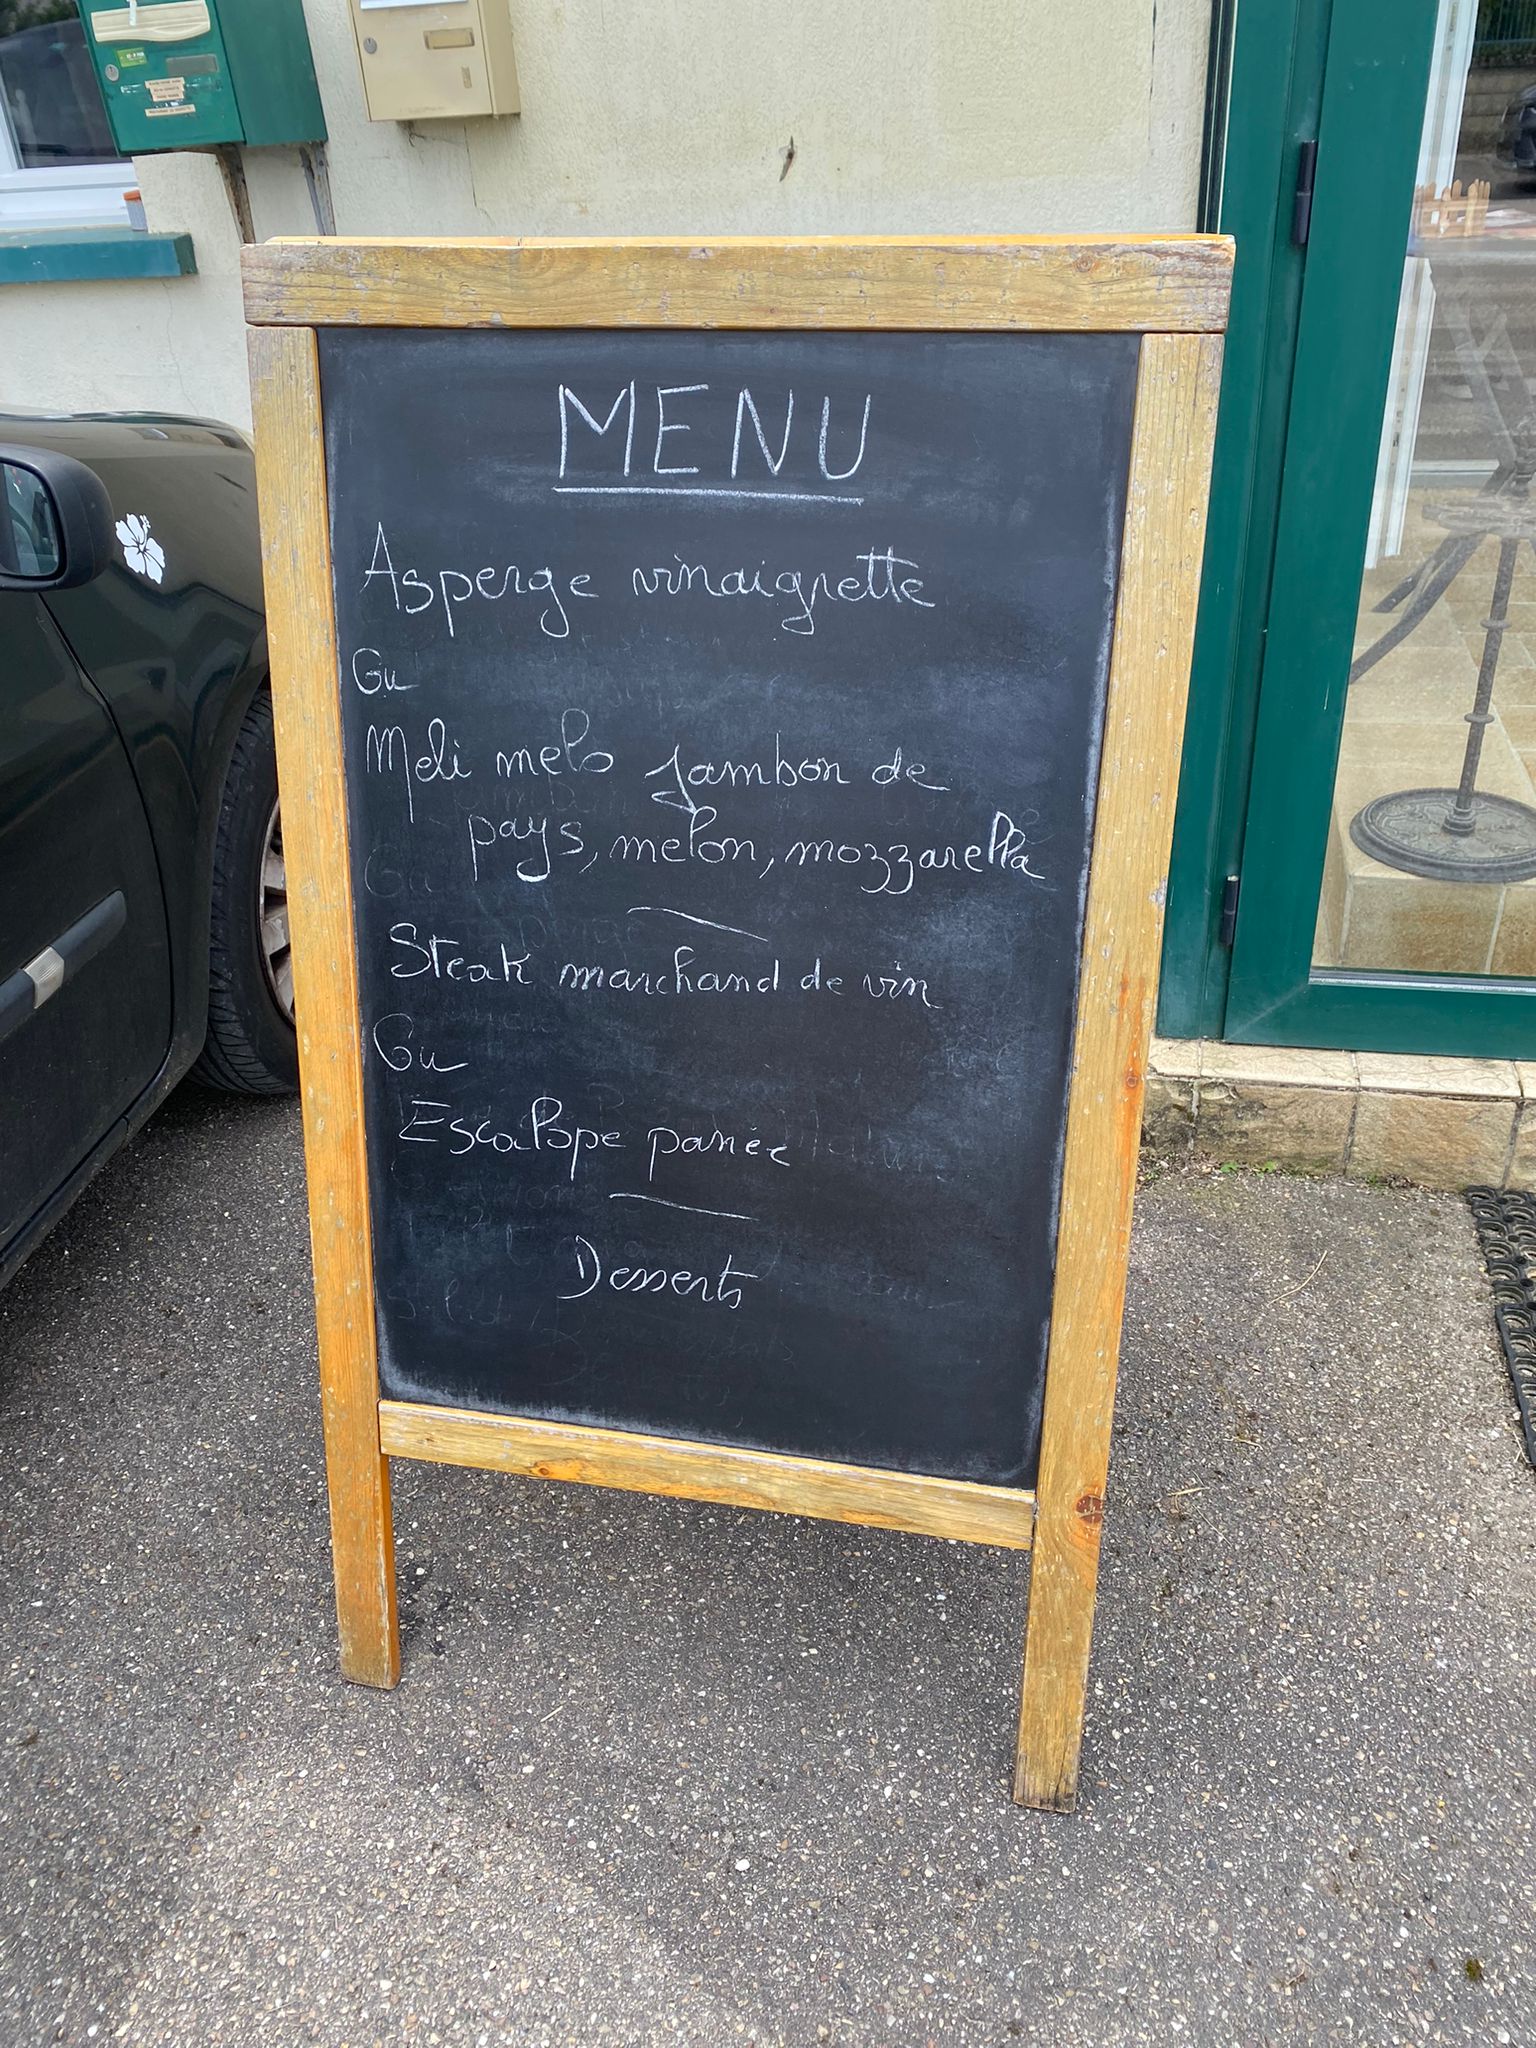 MENU
Asperge vinaigrette
Ou
Meli melo jambon de
pays, melon, mozzarella
Steak marchand de vin
Ou
Escalope panée
Desserts